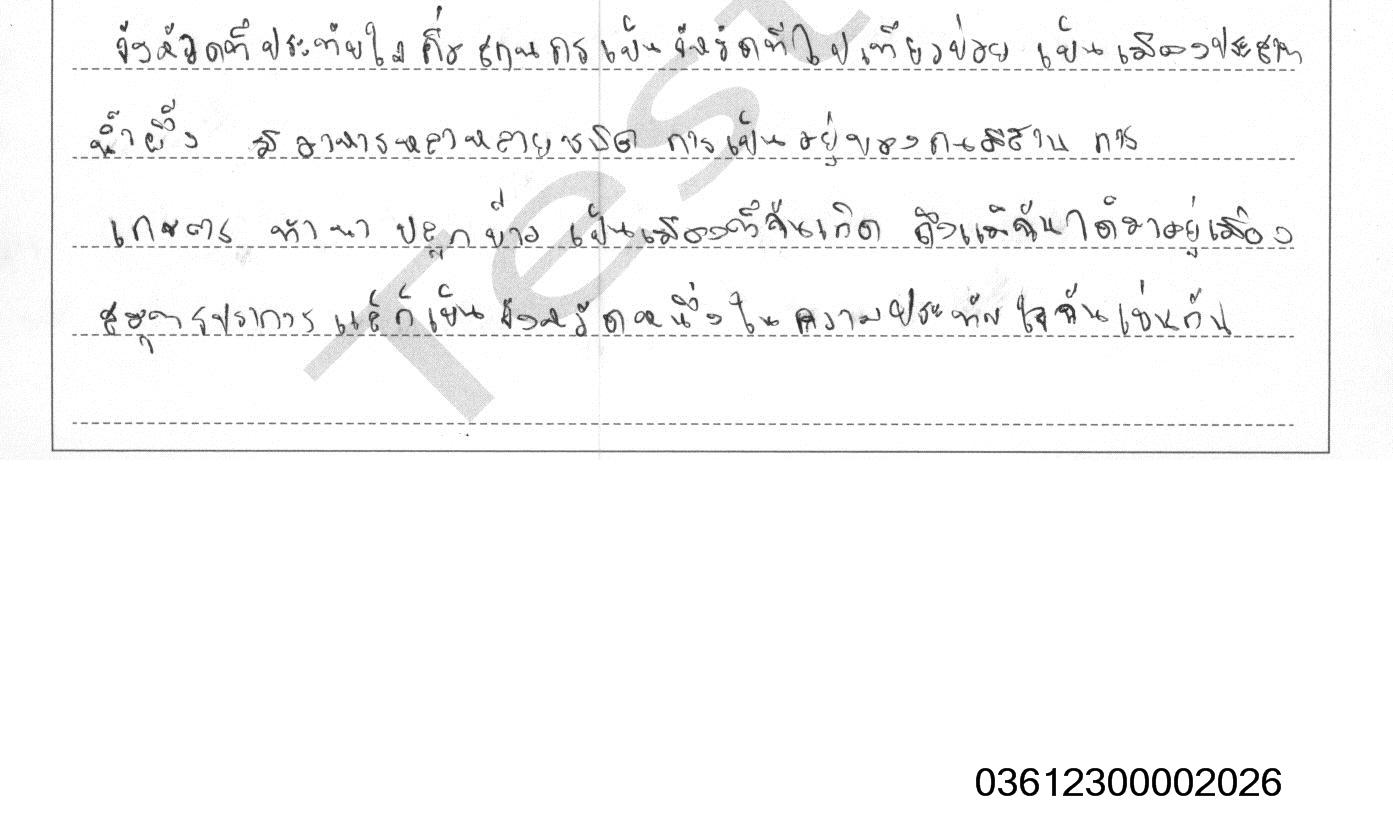 จังหวัดที่ประทับใจ คือ สกลนคร เป็นจังหวัดที่ไปเที่ยวบ่อย เป็นเมืองปราสาท
น้ำผึ้ง มีอาหารหลากหลายชนิด การเป็นอยู่ของคนอีสาน การ
เกษตร ทำนา ปลูกข้าว เป็นเมืองที่ฉันเกิด ถึงแม้ฉันได้มาอยู่เมือง
สมุทรปราการ แต่ก็เป็นจังหวัดหนึ่งในความประทับใจฉันเช่นกัน
Test
03612300002026